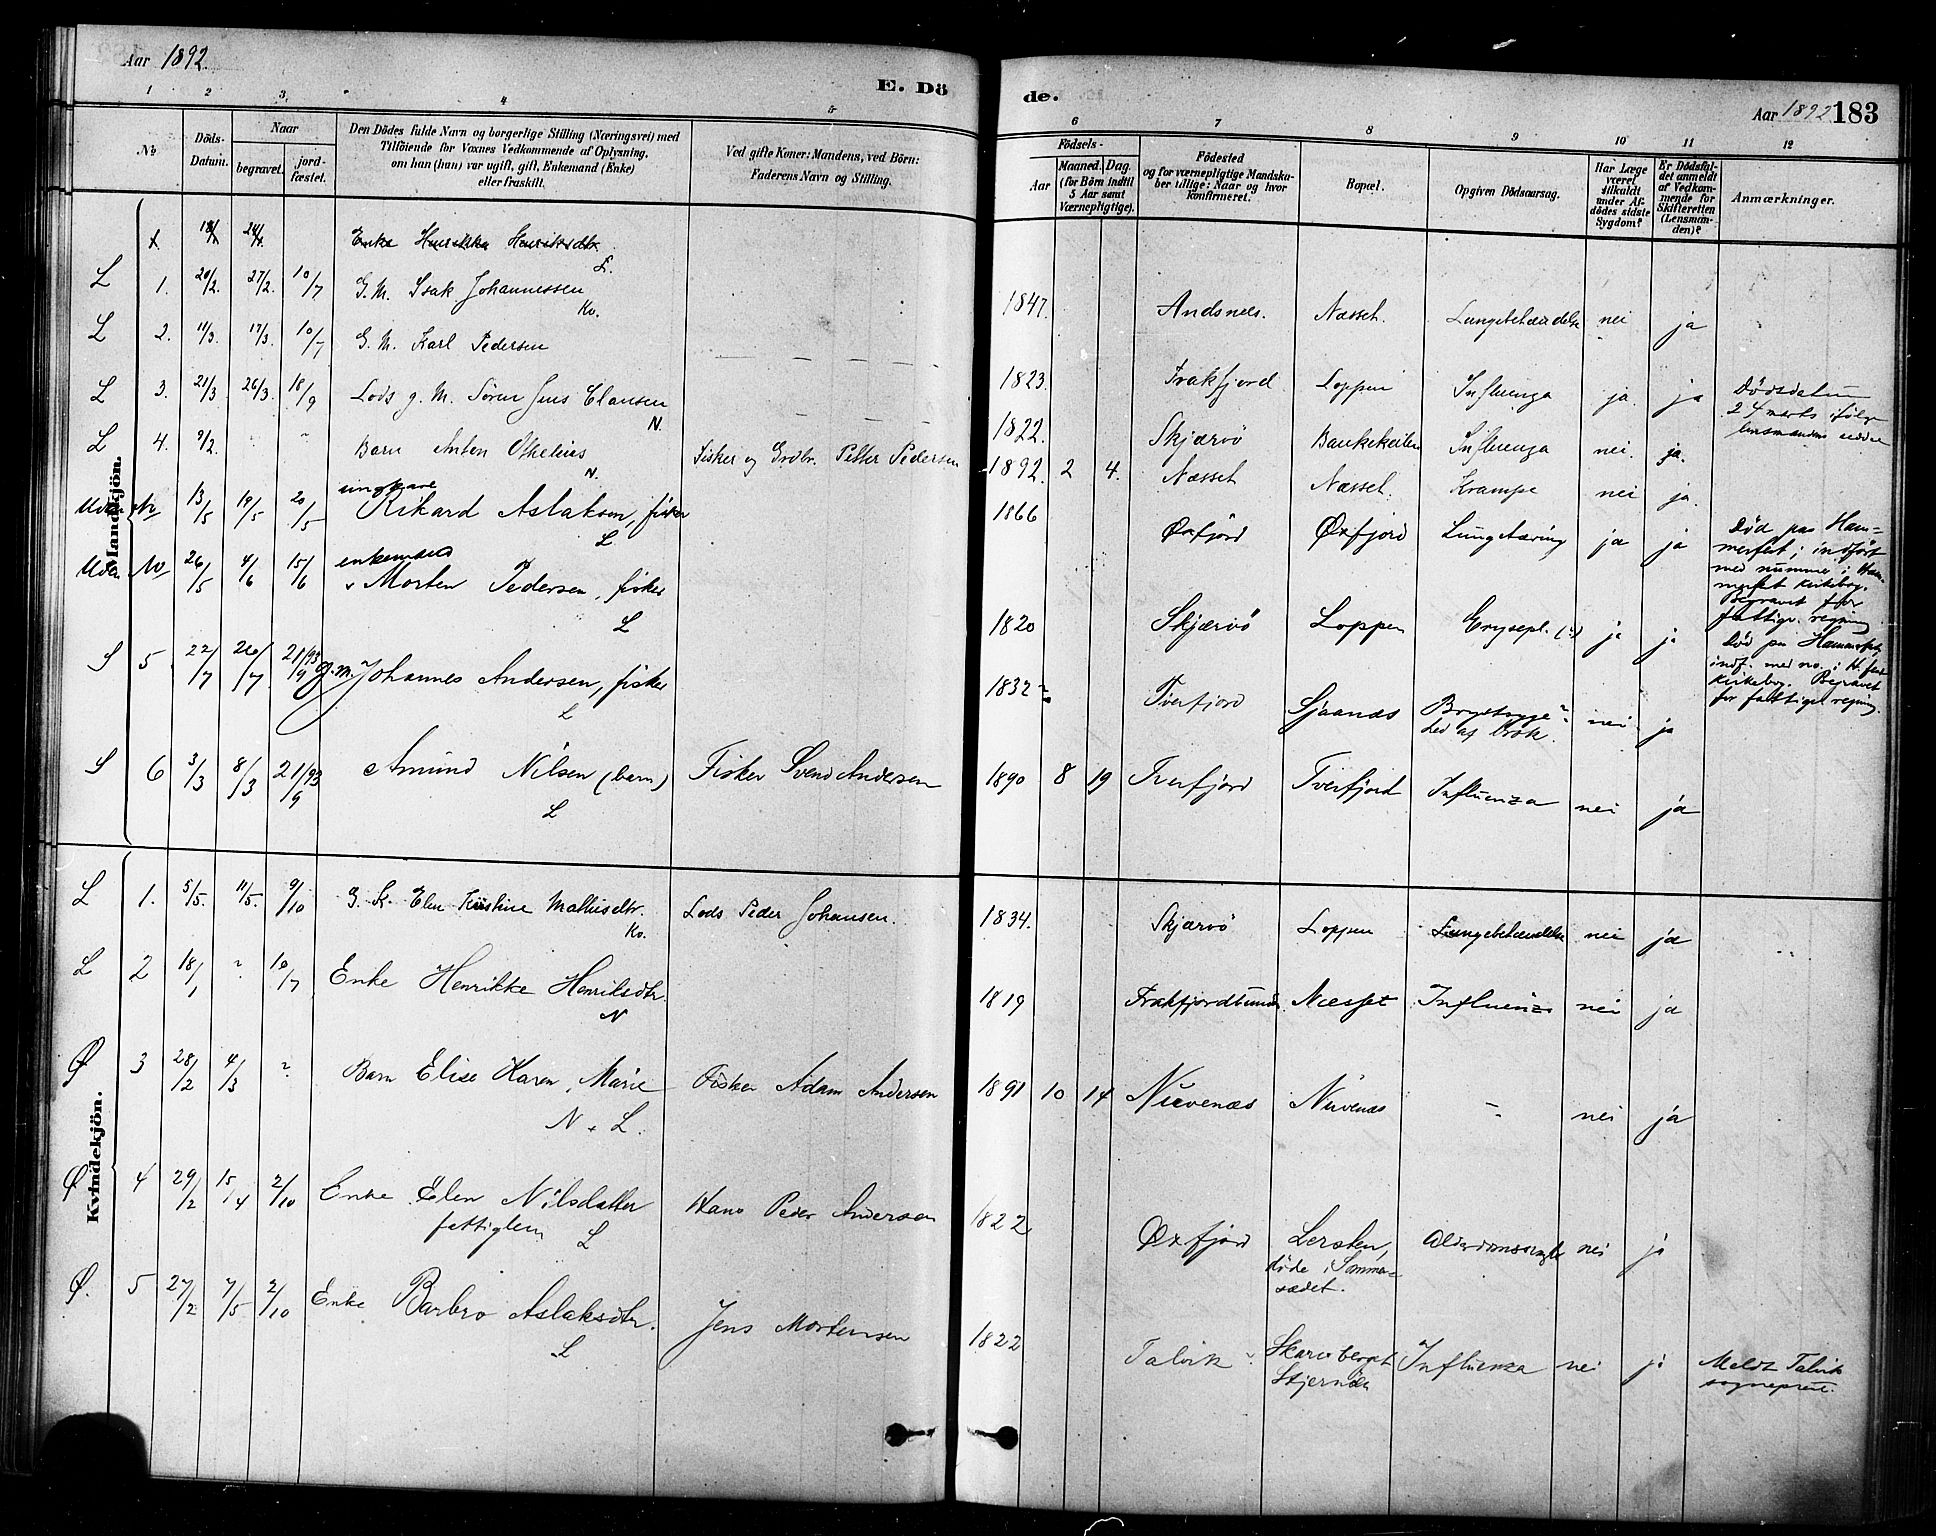 Aar 1892.
E. Dö
de.
Aar 1892 183
1 2 3. 4 5
6 7 8 9 10 11 12
No.
Döds-Datum.
Naar
begravet.
jord-fæstet.
Den Dödes fulde Navn og borgerlige Stilling (Næringsvei) med
Tilföiende for Voxnes Vedkommende af Oplysning,
om han (hun) var ugift, gift, Enkemand (Enke)
eller fraskilt.
Ved gifte Koner: Mandens, ved Börn:
Faderens Navn og Stilling.
Födsels-
Aar
Maaned. Dag.
(for Börn indtil
5 Aar samt
Værnepligtige).
Födested
og for værnepligtige Mandska-
ber tillige: Naar og hvor
konfirmeret.
Bopæl.
Opgiven Dödsaarsag.
Har Læge
været
tilkaldt
under Af-
dödes sidste
Sygdom?
Er Dödsfal-
det anmeldt
af Vedkom-
mende for
Skifteretten
(Lensman-
den)?
Anmærkninger.
Mandkjön.
Enke Henrikka Henriksdtr.
L 1. 20/2. 27/2. 10/7 G. M. Isak Johannessen L. 1847. Andsnes. Næsset. Lungebetændelse nei ja
L 2. 11/3. 17/3. 10/7 G. M. Karl Pedersen Kv. 1823. Frakfjord Loppen Influenza ja. ja Dödsdatum
24 marts ifølge
lensmandens
L 3. 21/3 26/3. 18/9 Lods g. M. Sören Jens Clausen 1822. Skjærvö Influenza nei. ja.
L 4. 9/2. Barn Anton Othelius N. Fisker og Grdbr. Petter Pedersen 1892. 2 4. Næsset Næsset. Krampe nei ja.
Uden No 13/5 19/5 20/5 ungkare Rikard Aslaksen, fisker N. 1866 Øxfjord Øxfjord Lungetæring ja ja Död paa Ham-
merfest; indfört
med nummer i Ham-
merfest kirkebog.
Begravet for
fattigv. regning
Uden No 26/5 4/6 15/6 enkemand Morten Pedersen, fisker L 1820 Skjærvö Loppen Erysepl. ja ja Död paa Hammerfest,
indf. med no. i H. fest
kirkebog. Begravet
for fattiges regning.
S 5 22/7 26/7 21/9 93 g. m. Johannes Andersen, fisker L 1832 Tverfjord Sjaanæs Brystsyge-
hed af brok. nei ja
S 6 3/3 8/3 21/9 93 Amund Nilsen (barn) L Fisker Svend Andersen 1890 8 19 Tverfjord Tverfjord Influenza nei ja
Kvindekjön.
L 1. 5/5. 11/5. 9/10 G. K. Elen Kristine Mathisdtr. Kv. Lods Peder Johansen. 1834. Skjærvö Loppen Lungebetændelse nei ja
L 2 18/1 ? 10/7 Enke Henrikke Henriksdtr. N 1819 Frakfjordbunden Næsset Influenza nei ja
Ø 3 28/2 4/3 ? Barn Elise Karen Marie N. L. Fisker Adam Andersen 1891 10 14 Nuvenæs Nuvenæs - nei ja
Ø 4 29/2 15/4 2/10 Enke Elen Nilsdatter
fattiglem L Hans Peder Andersen 1822 Øxfjord Lersten,
døde i Sommer-
sædet. Alderdomssvaghed nei ja
Ø. 5 27/2 7/5 2/10 Enke Barbro Aslaksdtr. L Jens Mortensen 1822 Talvik Skarvberget
Stjernøen Influenza nei ja Meldt Talvik
sognepræst.